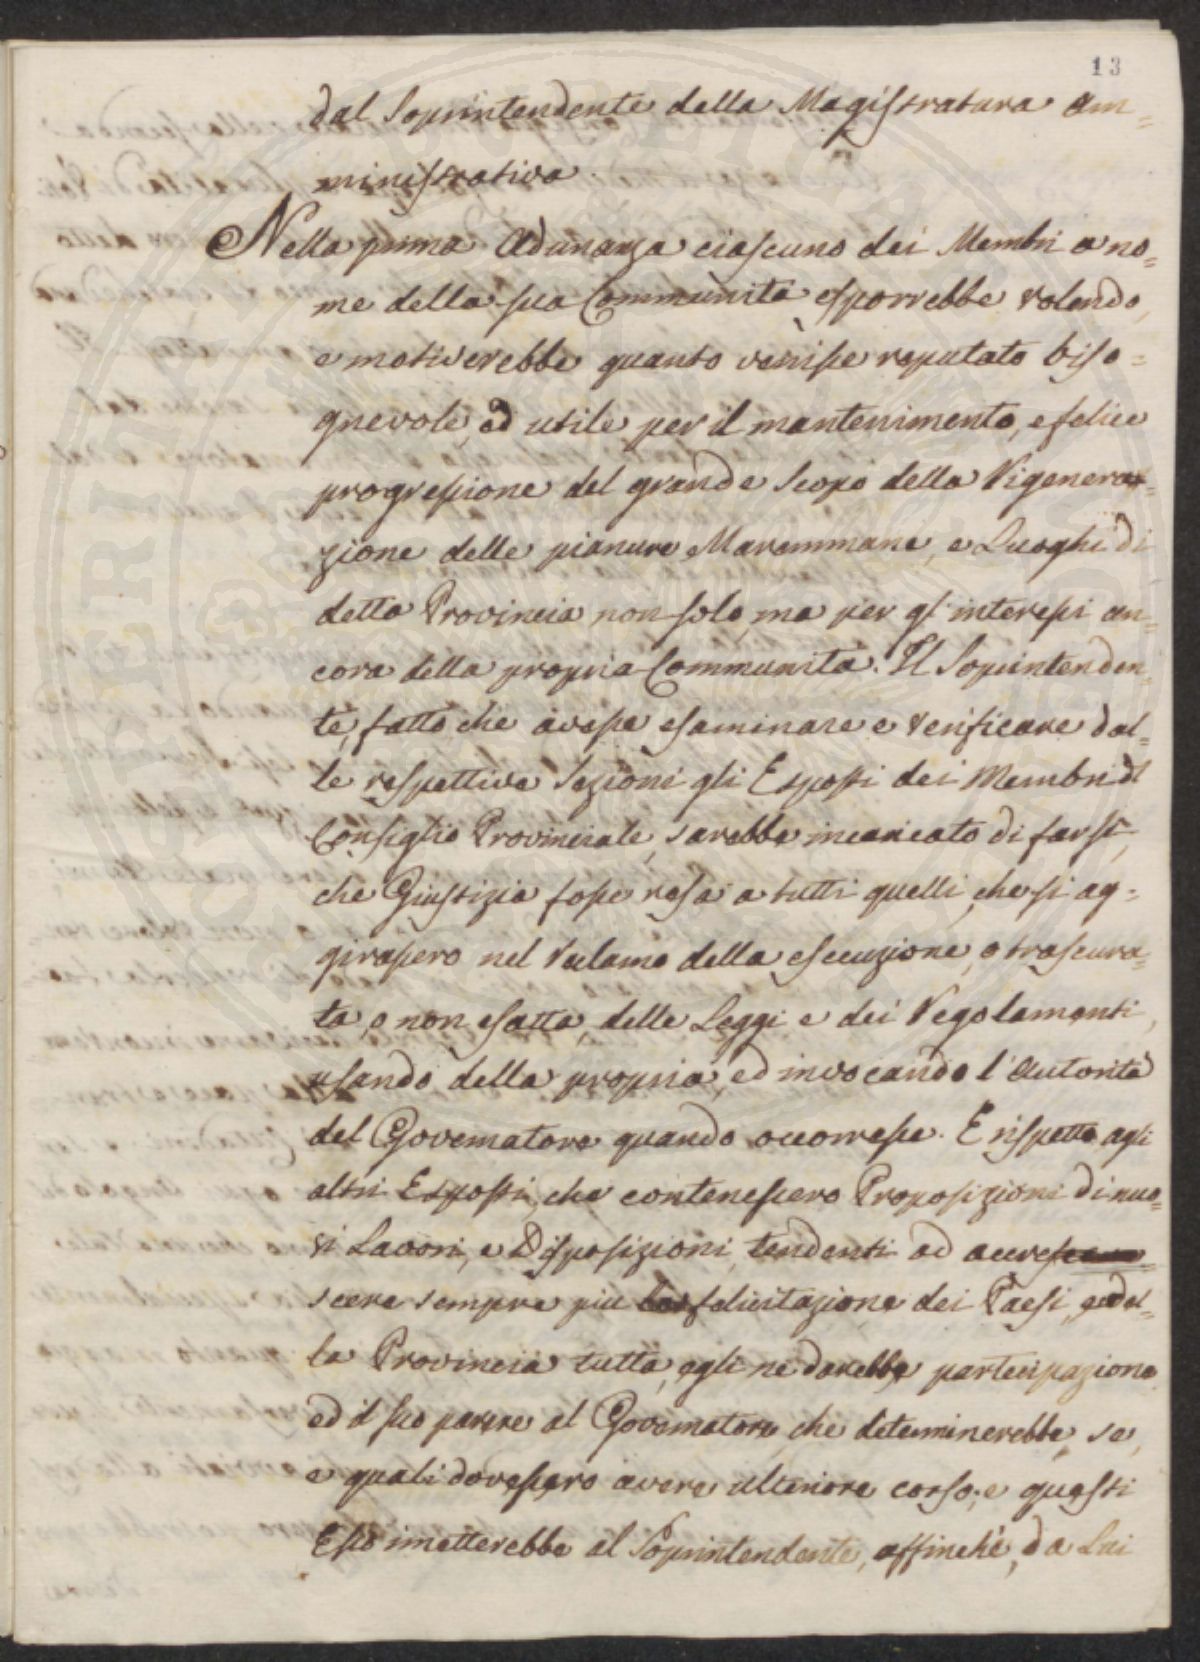 13
dal Soprintendente della Magistratura am=
ministrativa.
Nella prima Adunanza ciascuno dei Membri a no=
me della sua Communità esporrebbe volendo,
e motiverebbe quanto venisse reputato biso=
gnevole, ed utile per il mantenimento, e felice
progressione del grande Scopo della Rigenera=
zione delle pianure Maremmane, e Luoghi di
detta Provincia non solo, ma per gl'interessi an=
cora della propria Communità. Il Soprintenden=
te, fatto che avesse esaminare e verificare dal=
le respettive Sezioni gli Esposti dei Membri del
Consiglio Provinciale, sarebbe incaricato di far sì,
che Giustizia fosse resa a tutti quelli, che si ag=
girassero nel reclamo della esecuzione, o trascura=
ta, o non esatta, delle Leggi e dei Regolamenti,
usando della propria, ed invocando l'Autorità
del Governatore quando occorresse. E rispetto agli
altri Esposti, che contenessero Proposizioni di nuo=
vi Lavori, e Disposizioni, tendenti ad accre
scere sempre più la felicitazione dei Paesi, e del=
la Provincia tutta, egli ne darebbe partecipazione
ed il suo parere al Governatore, che determinerebbe, se,
e quali dovessero avere ulteriore corso; e questi
Esso imetterebbe al Soprintendente, affinchè, da Lui